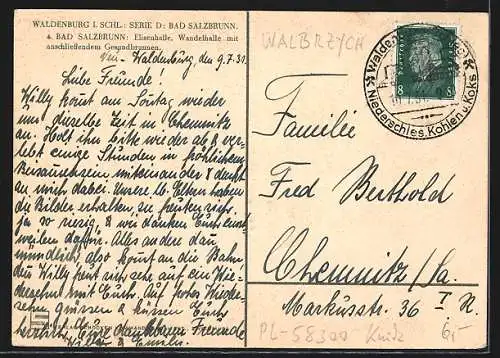 WALDENBURG I. SCHL.: SERIE D: BAD SALZBRUNN.
4. BAD SALZBRUNN: Elisenhalle, Wandelhalle mit
anschließendem Gesundbrunnen.
Waldenburg, den 9.7.31.
Liebe Freunde!
Willy kommt am wieder
um dieselbe Zeit in Chemnitz
an. Holt ihn bitte wieder ab &
verlebt einige Stunden in fröhlichem
Beisammensein miteinander & denkt
an mich dabei. Unsere lb. Eltern haben
die Bilder erhalten, sie freuten sich
ja so riesig, & wir danken Euch einst-
weilen dafür. Alles andere dann
mündlich also kommt an die Bahn,
den Willy freut sich sehr auf ein Wie-
dersehn mit Euch. Auf frohes Wieder-
sehn grüssen & küssen Euch
Eure dankbaren Freunde
Willy & Emilie.
WALBRZYCH
DEUTSCHES REICH
8 8
Niederschles. Kohlen u. Koks
Familie
Fred Berthold
Chemnitz/Sa.
Markusstr. 36 I r.
PL-58300
6,-